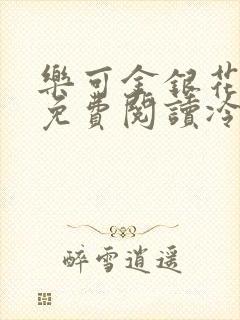 樂可金銀花
免費閱讀冷
醉雪逍遥